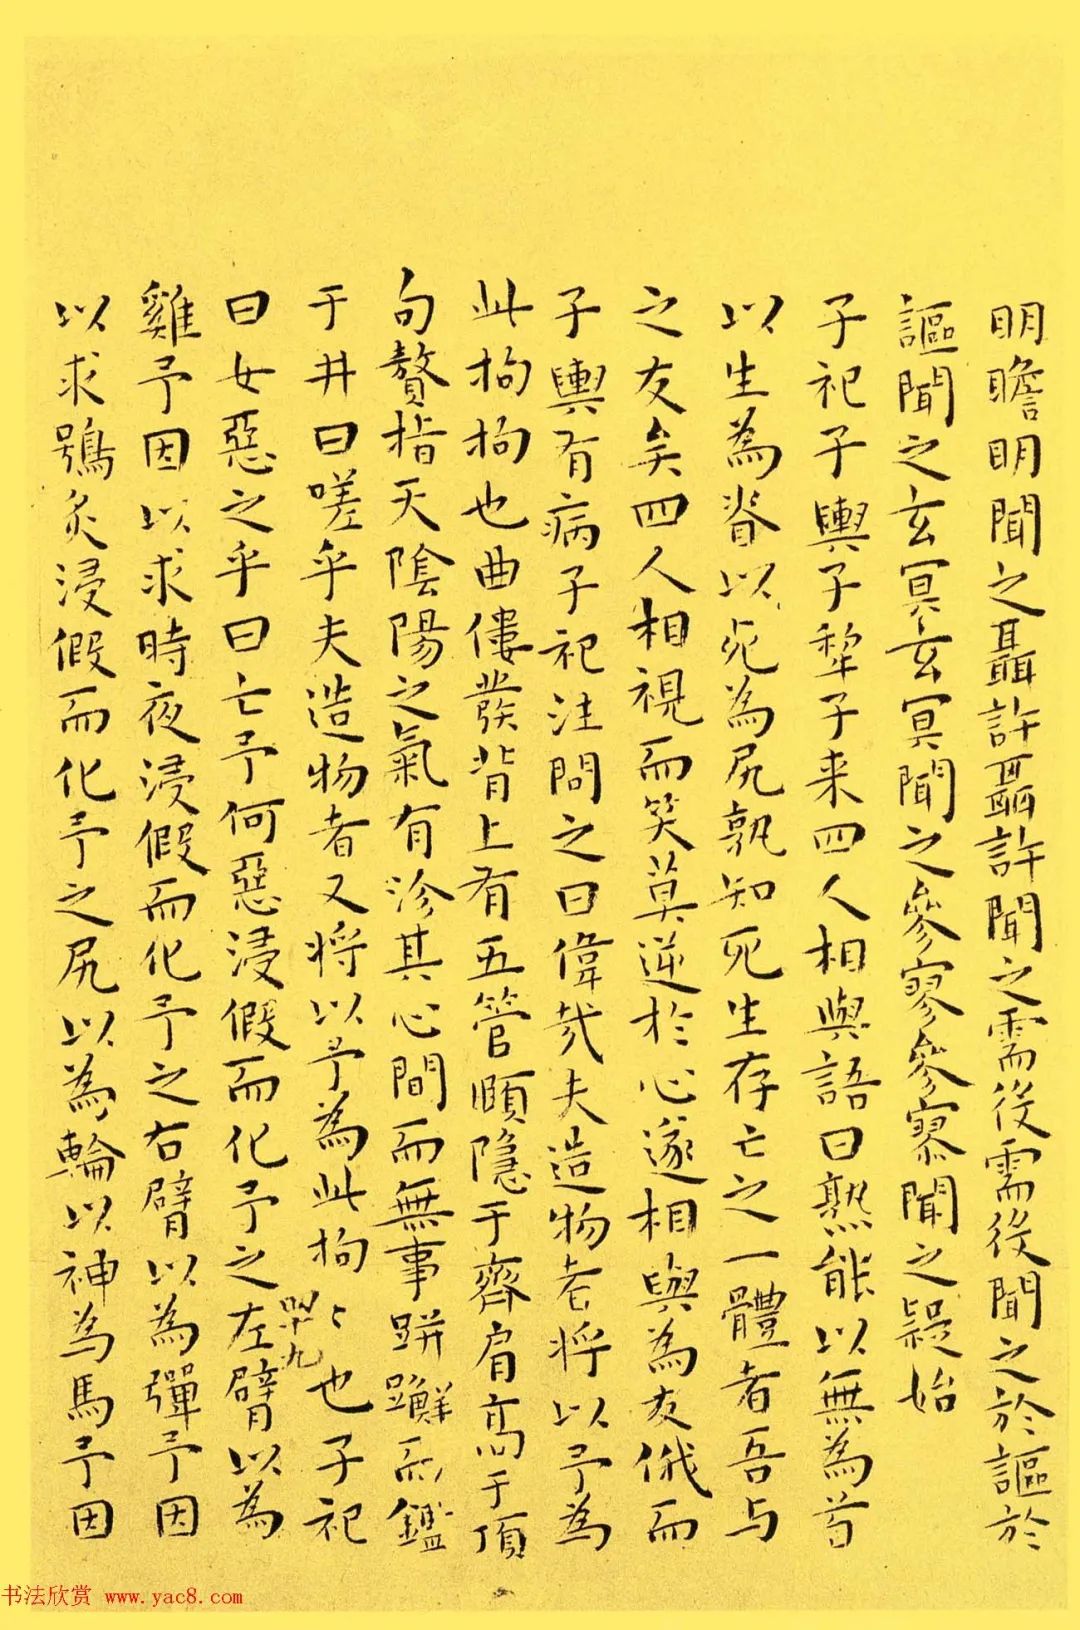 明瞻明聞之聶許聶許聞之需役需役聞之於謳於
謳聞之玄冥玄冥聞之參寥參寥聞之疑始
子祀子輿子犂子来四人相與語曰孰能以無為首
以生為脊以死為尻孰知死生存亡之一體者吾与
之友矣四人相視而笑莫逆於心遂相與為友俄而
子輿有病子祀往問之曰偉哉夫造物者將以予為
此拘拘也曲僂發背上有五管頤隱于齊肩高于頂
句贅指天陰陽之氣有沴其心間而無事跰𨇤而鑑
于井曰嗟乎夫造物者又将以予為此拘〻也子祀
曰女惡之乎曰亡予何惡浸假而化予之左臂以為
雞予因以求時夜浸假而化予之右臂以為彈予因
以求鴞炙浸假而化予之尻以為輪以神為馬予因
书法欣赏 www.yac8.com